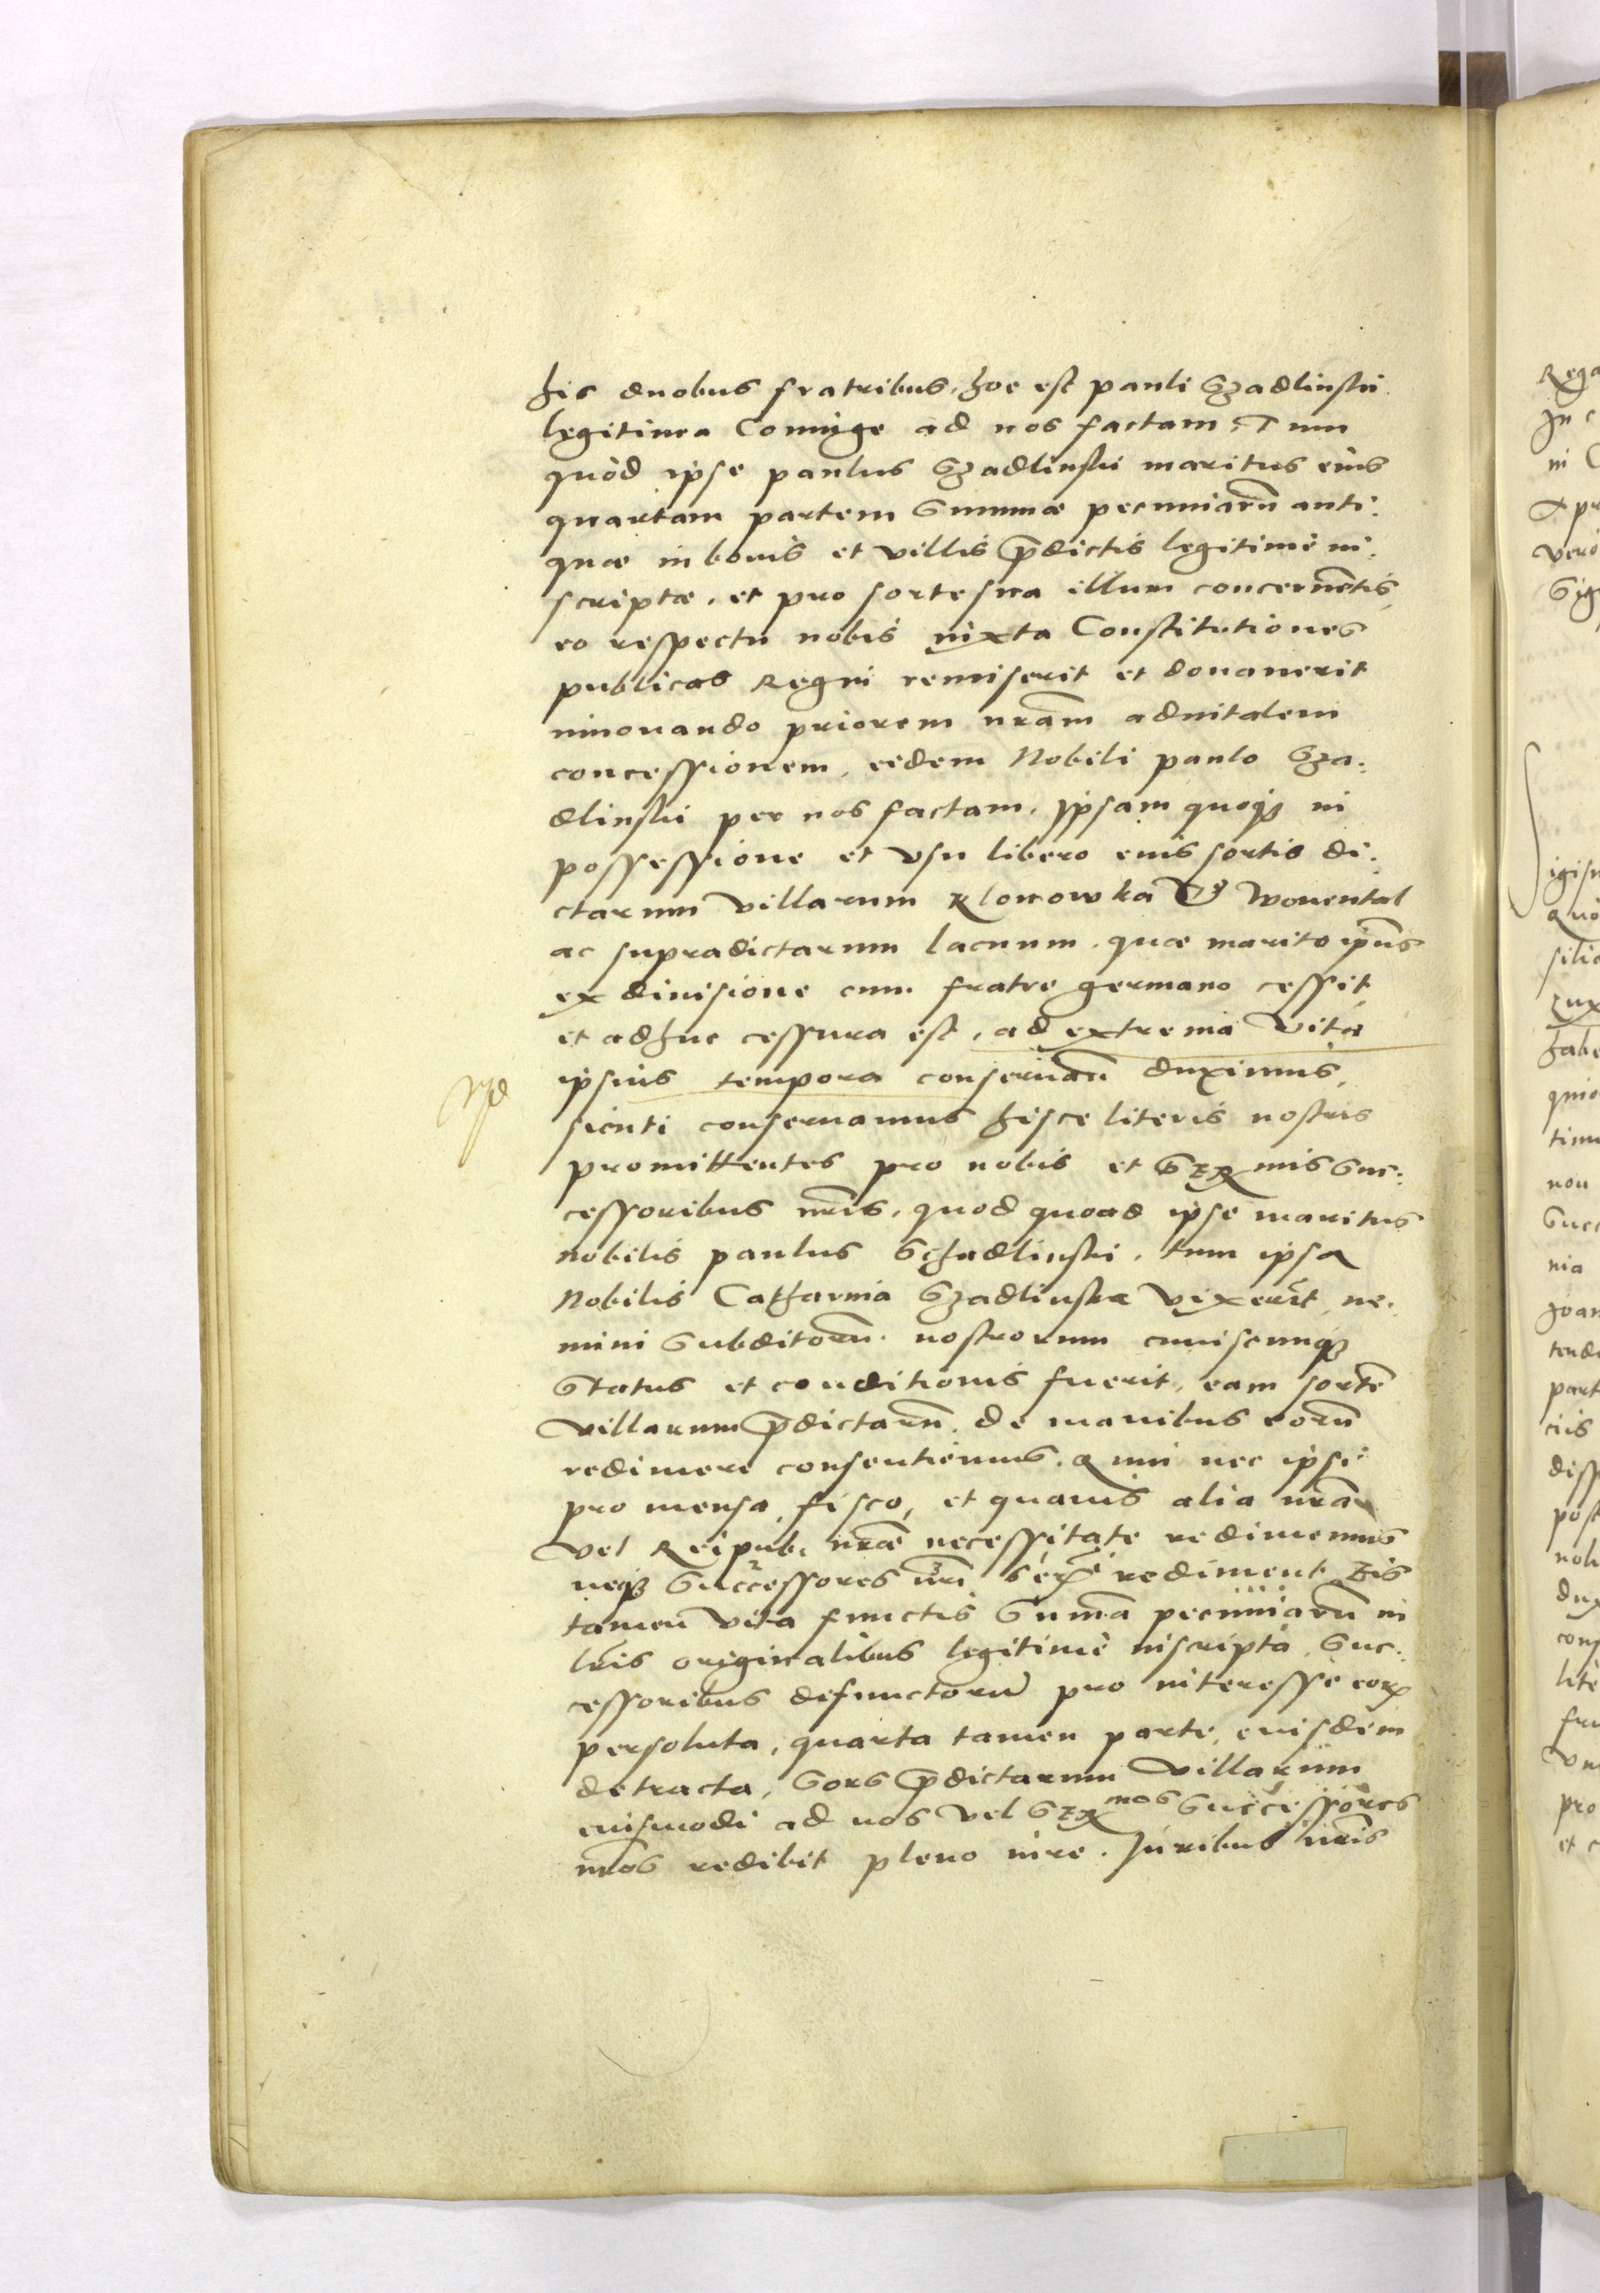 his duobus fratribus, hoc est pauli Szadlinski
legitima Coniuge ad nos factam, Tum
quòd ipse paulus Szadlinski maritus eius
quartam partem Summæ pecuniarū anti:
quæ in bonis et villis p̄dictis legitimè in:
scriptæ, et pro sorte sua illum concernētis,
eo respectu nobis iuxta Constitutiones
publicas Regni remiserit et donauerit
innouando priorem nr̄am aduitalem
concessionem, eidem Nobili paulo Sza:
dlinski per nos factam, Ipsam quoqȝ in
possessione et vsu libero eius sortis di:
ctarum villarum Klonowka & Wonental
ac supradictarum lacuum, quæ marito ip̄ius
ex diuisione cum fratre germano cessit
et adhuc cessura est, ad extrema vitæ
ipsius tempora conseruādā duximus,
sicuti conseruamus hisce literis nostris
promittentes pro nobis et Serꝫmis Suc:
cessoribus nr̄is, quod quoad ipse maritus
nobilis paulus Schadlinski, tum ipsa
Nobilis Catharina Szadlinska vixerīt, ne:
mini Subditorū nostrorum cuiuscunqȝ
Status et conditionis fuerit, eam sortē
villarum p̄dictarū de manibus eorū
redimere consentiemus, Quin nec ipsi
pro mensa, fisco, et quauis alia nr̄a
vel Reipub. nr̄æ necessitate redimemus
neqȝ Successores nr̄i Serꝫmi rediment, His
tamen vita functis Sum̄a pecuniarū in
lr̄is originalibus legitimè inscripta, Suc:
cessoribus defunctorū pro interesse eorꝫ
persoluta, quarta tamen parte, eiusdem
detracta, Sors p̄dictarum villarum
eiusmodi ad nos vel Serꝫmos Successores
nr̄os redibit pleno iure. Iuribus nr̄is